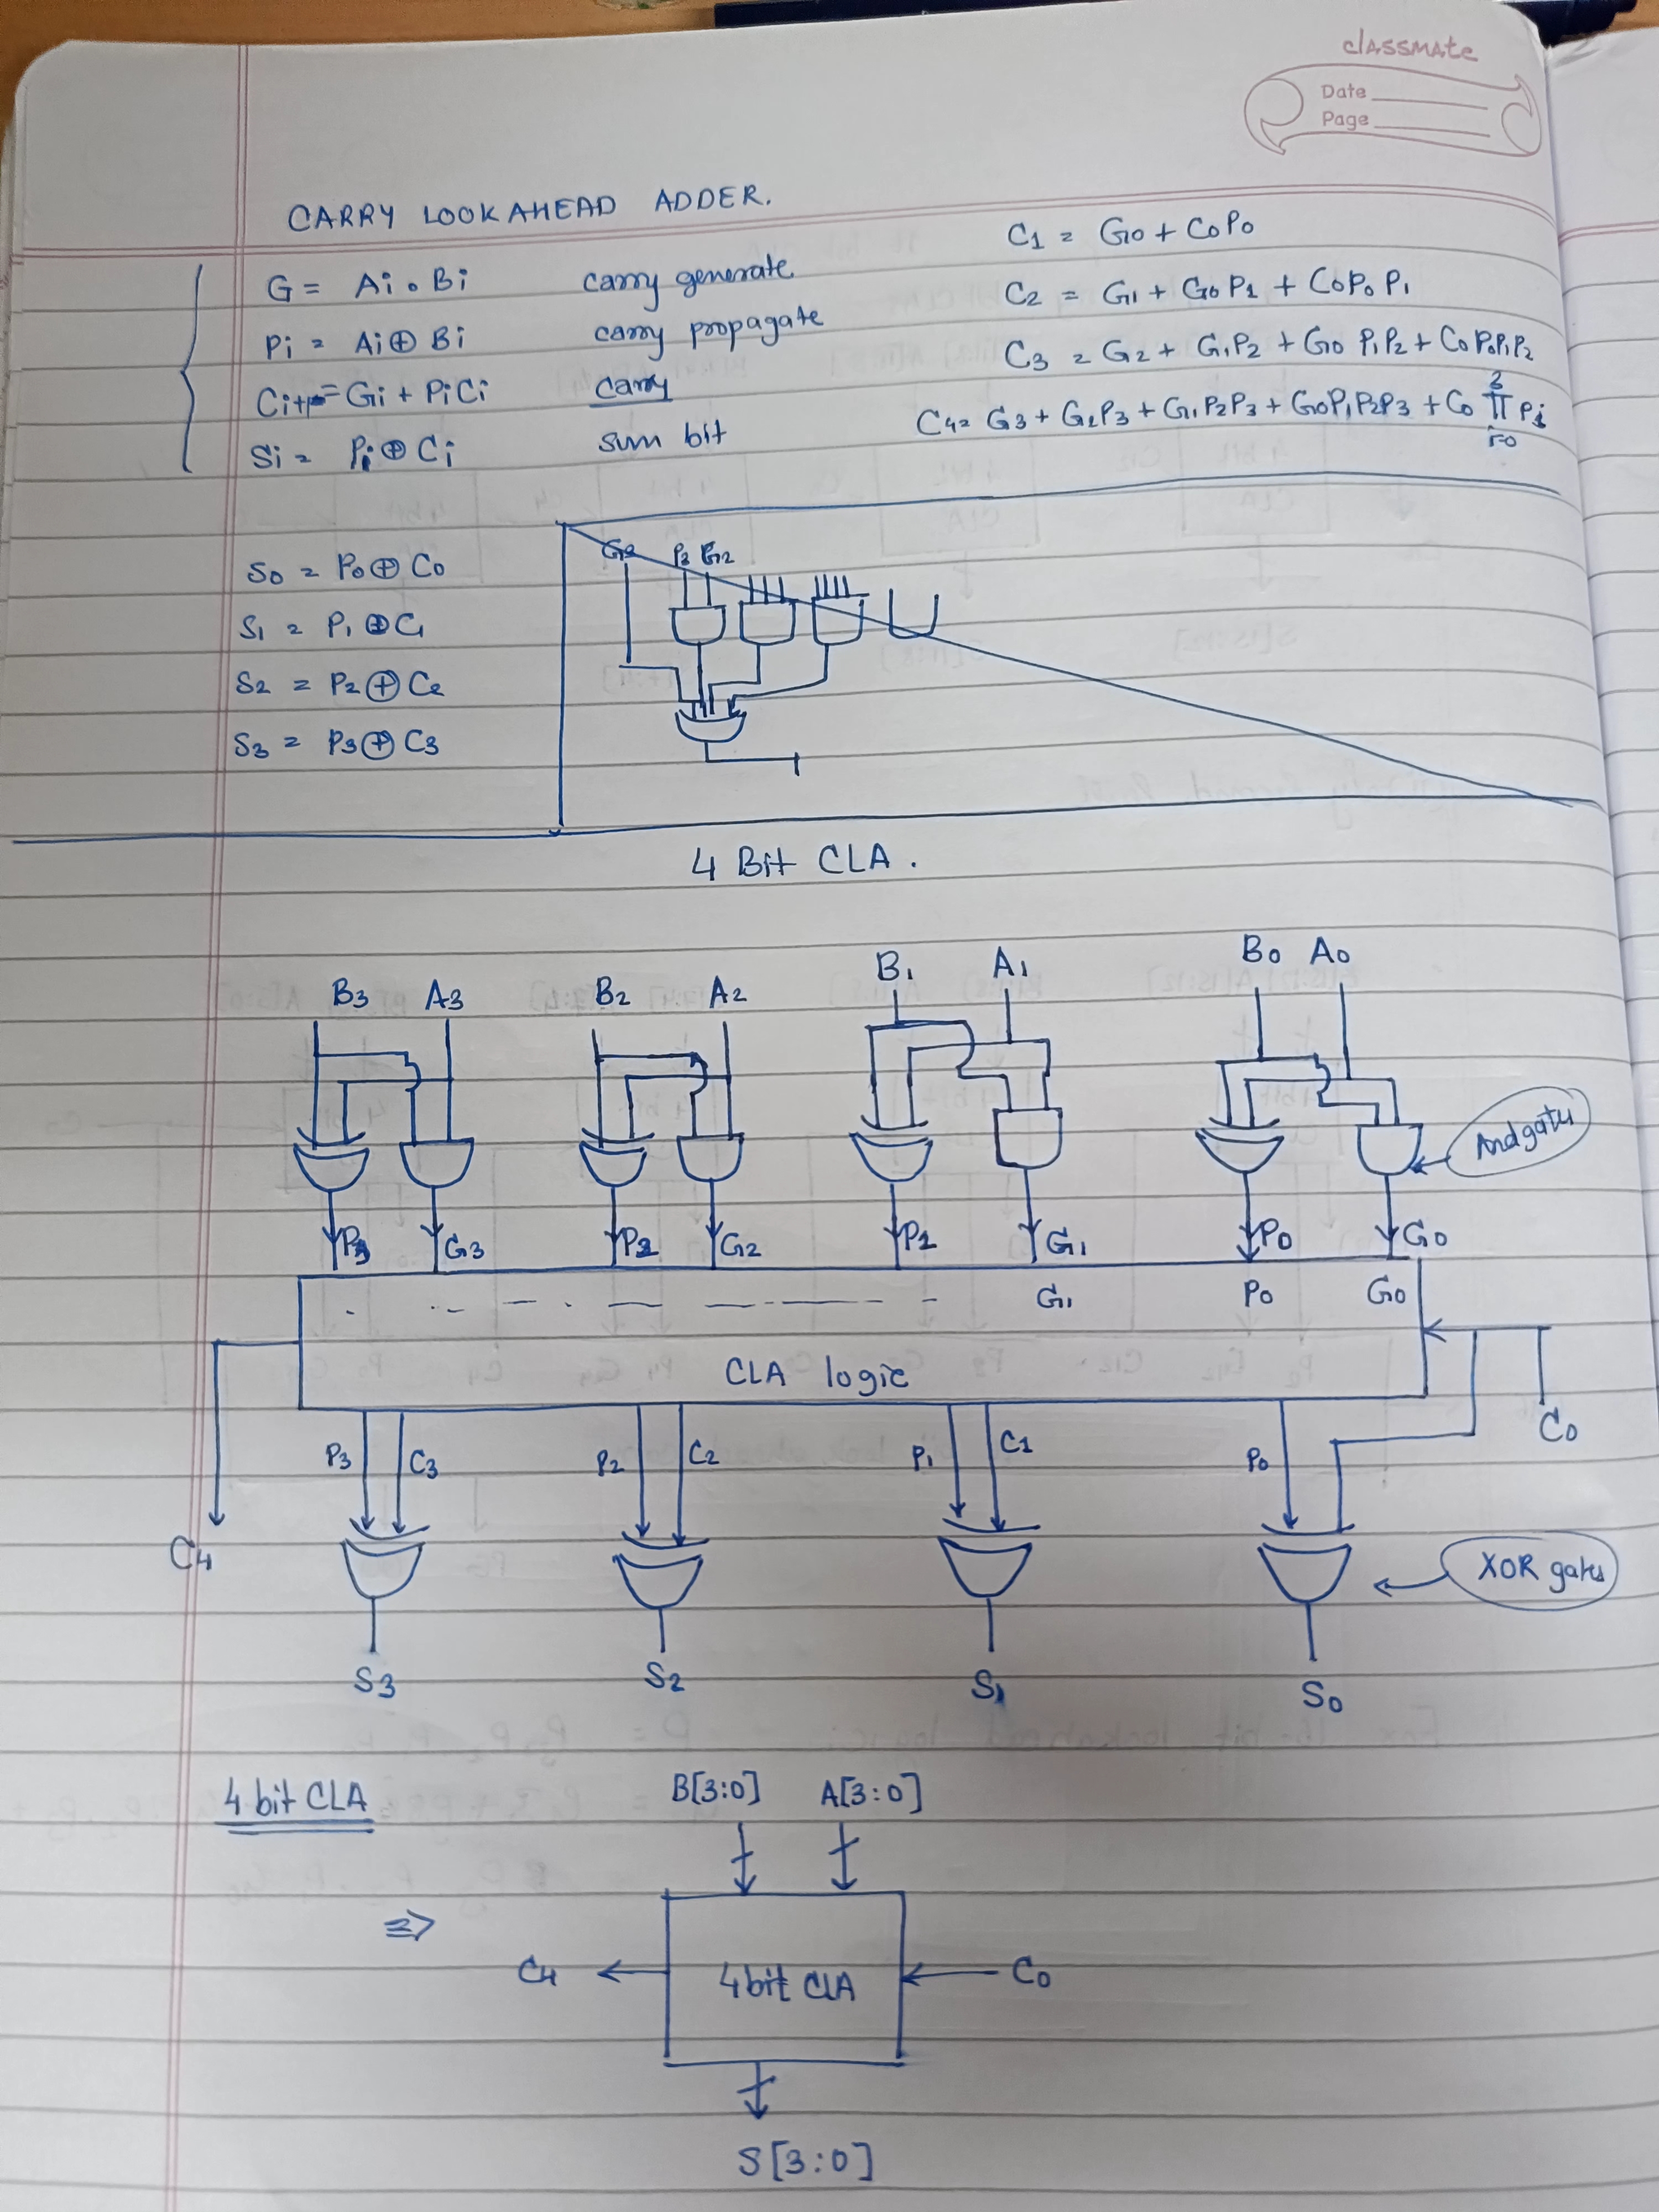 classmate
Date
Page
CARRY LOOKAHEAD ADDER.
G = Ai . Bi carry generate
Pi = Ai ⊕ Bi carry propagate
Ci+1 = Gi + PiCi carry
Si = Pi ⊕ Ci sum bit
C1 = G0 + C0P0
C2 = G1 + G0P1 + C0P0P1
C3 = G2 + G1P2 + G0P1P2 + C0P0P1P2
C4 = G3 + G2P3 + G1P2P3 + G0P1P2P3 + C0 3 Π Pi i=0
S0 = P0 ⊕ C0
S1 = P1 ⊕ C1
S2 = P2 ⊕ C2
S3 = P3 ⊕ C3
G3 P3 G2
4 Bit CLA.
B3 A3 B2 A2 B1 A1 B0 A0
And gates
P3 G3 P2 G2 P1 G1 P0 G0
G1 P0 G0
CLA logic
C0
P3 C3 P2 C2 P1 C1 P0
C4
XOR gates
S3 S2 S1 S0
4 bit CLA
B[3:0] A[3:0]
⇒
C4 4 bit CLA C0
S[3:0]